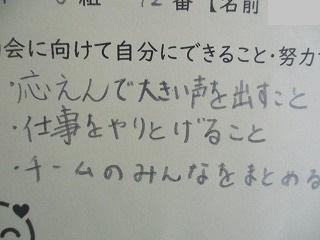 組 12番【名前
会に向けて自分にできること・努力
・応えんで大きい声を出すこと
・仕事をやりとげること
・チームのみんなをまとめる